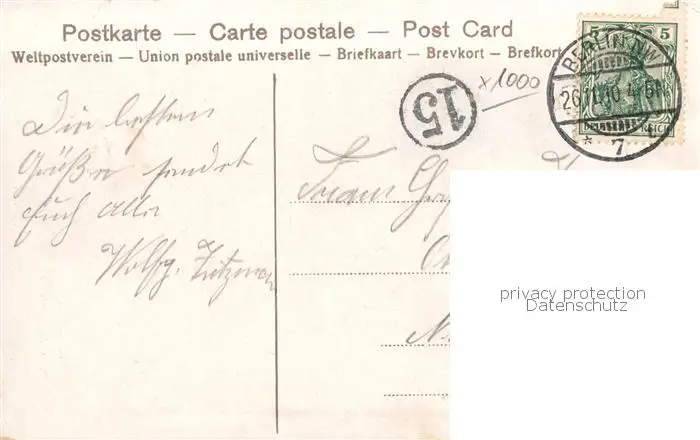 Postkarte — Carte postale — Post Card
Weltpostverein — Union postale universelle — Briefkaart — Brevkort — Brefkort
5 5
BERLIN NW
26.11.10. 4-5N.
* 7
REICH
15
x1000
Die besten
Grüße sendet
Euch Allen
Wolfg.
privacy protection
Datenschutz